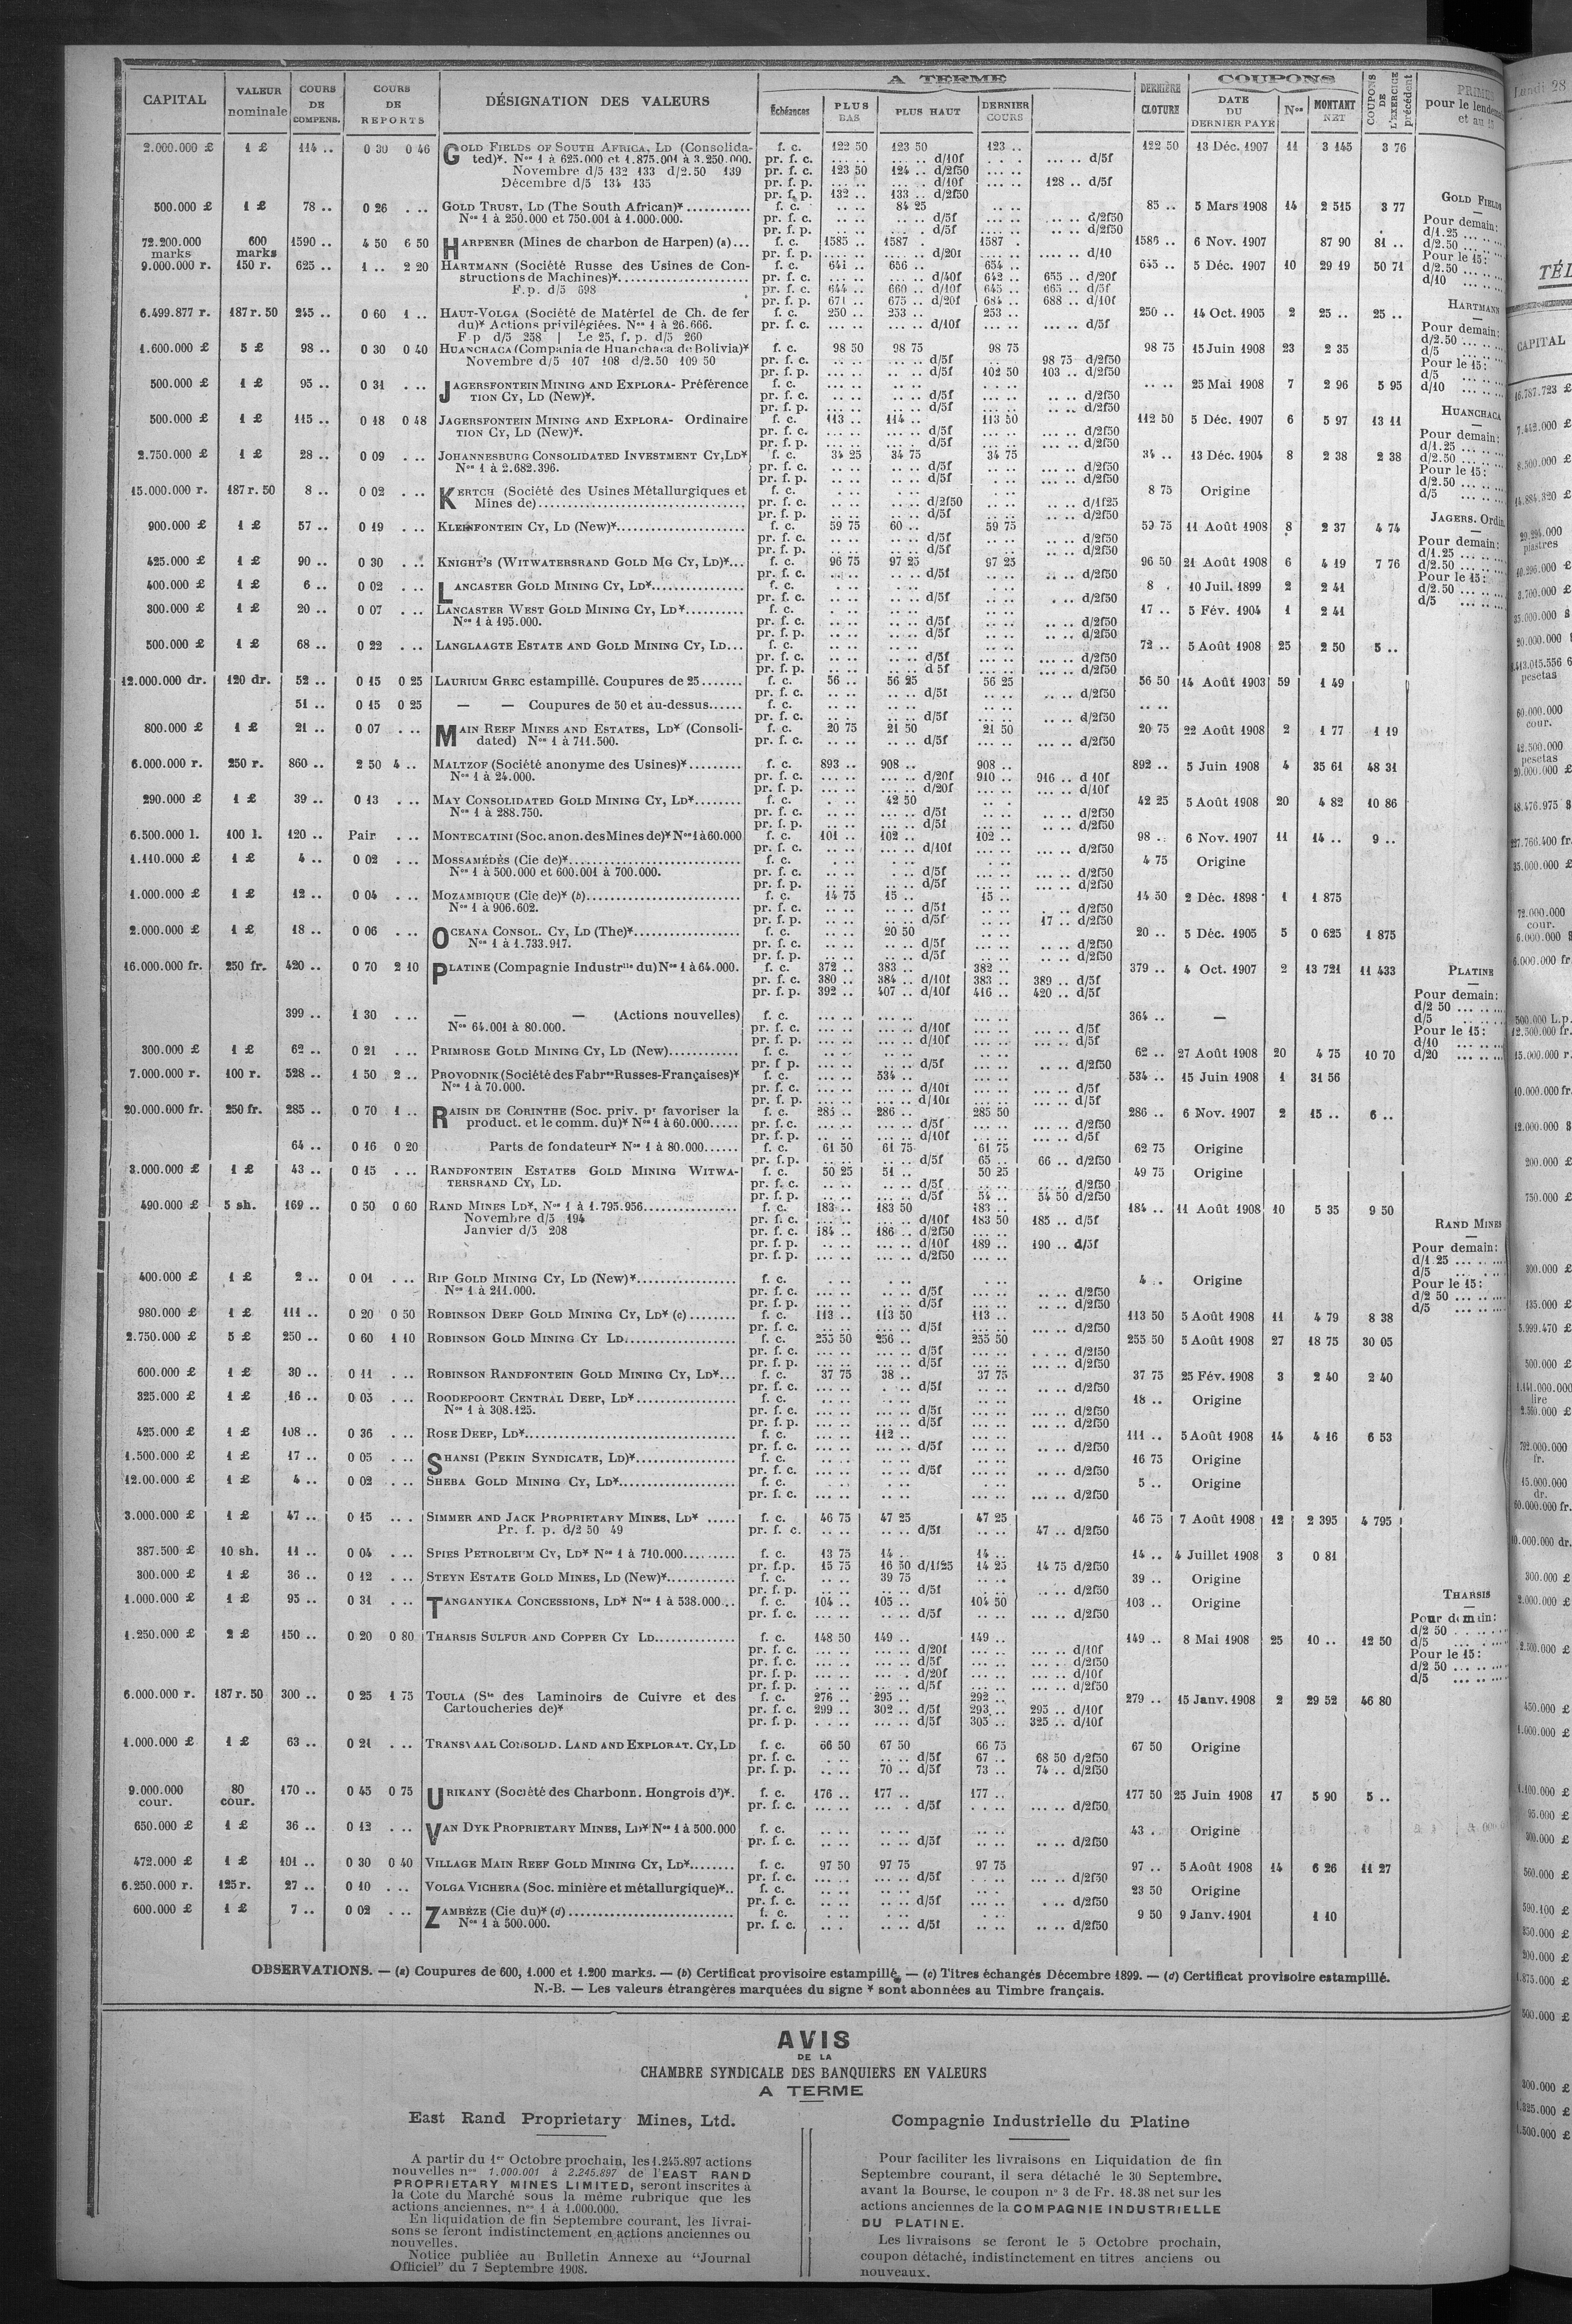 CAPITAL VALEUR nominale COURS DE COMPENS. COURS DE REPORTS DÉSIGNATION DES VALEURS A TERME Échéances PLUS BAS PLUS HAUT DERNIER COURS DERNIÈRE CLOTURE COUPONS DATE DU DERNIER PAYÉ Nos MONTANT NET COUPONS DE L'EXERCICE précédent
2.000.000 £ 1 £ 114 .. 0 30 0 46 GOLD FIELDS OF SOUTH AFRICA, LD (Consolida- f. c. 122 50 123 50 123 .. 122 50 13 Déc. 1907 11 3 145 3 76
ted)*. Nos 1 à 625.000 et 1.875.001 à 3.250.000. pr. f. c. ... .. .... .. d/10f ... .. ... .. d/5f
Novembre d/5 132 133 d/2.50 139 pr. f. c. 123 50 124 .. d/2f50
Décembre d/5 134 135 pr. f. p. ... .. ... . d/10f ... .. 128 .. d/5f
pr. f. p. 132 .. 133 .. d/2f50
500.000 £ 1 £ 78 .. 0 26 . .. GOLD TRUST, LD (The South African)* f. c. .. .. 84 25 .. .. 85 .. 5 Mars 1908 14 2 515 3 77
Nos 1 à 250.000 et 750.001 à 1.000.000. pr. f. c. .. .. .. .. d/5f .. .. .. .. d/2f50
pr. f. p. .. .. .. . d/5f .. .. .. .. d/2f50
72.200.000 marks 600 marks 1590 .. 4 50 6 50 HARPENER (Mines de charbon de Harpen) (a)... f. c. 1585 .. 1587 . 1587 . 1586 .. 6 Nov. 1907 87 90 81 ..
pr. f. p. .... .. .... .. d/20f .... .. d/10
9.000.000 r. 150 r. 625 .. 1 .. 2 20 HARTMANN (Société Russe des Usines de Con- f. c. 641 .. 656 .. 654 .. 645 .. 5 Déc. 1907 10 29 19 50 71
structions de Machines)* pr. f. c. .. .. ... .. d/40f 642 .. 655 .. d/20f
F. p. d/5 698 pr. f. c. 644 .. 660 .. d/10f 645 .. 665 .. d/5f
pr. f. p. 671 .. 675 .. d/20f 684 .. 688 .. d/10f
6.499.877 r. 187 r. 50 245 .. 0 60 1 .. HAUT-VOLGA (Société de Matériel de Ch. de fer f. c. 250 .. 253 .. 253 .. 250 .. 14 Oct. 1905 2 25 .. 25 ..
du)* Actions privilégiées. Nos 1 à 26.666. pr. f. c. ... .. ... .. d/10f ... .. ... .. d/5f
F p d/5 258 | Le 25, f. p. d/5 260
1.600.000 £ 5 £ 98 .. 0 30 0 40 HUANCHACA (Compania de Huanchaca de Bolivia)* f. c. 98 50 98 75 98 75 98 75 15 Juin 1908 23 2 35
Novembre d/5 107 108 d/2.50 109 50 pr. f. c. ... .. ... .. d/5f .. .. 98 75 d/2f50
pr. f. p. ... .. ... .. d/5f 102 50 103 .. d/2f50
500.000 £ 1 £ 95 .. 0 31 . .. JAGERSFONTEIN MINING AND EXPLORA- Préférence f. c. .. .. .. .. .. .. 25 Mai 1908 7 2 96 5 95
TION CY, LD (New)*. pr. f. c. ... .. ... .. d/5f ... .. .. .. d/2f50
pr. f. p. ... .. ... .. d/5f ... .. .. .. d/2f50
500.000 £ 1 £ 115 .. 0 18 0 48 JAGERSFONTEIN MINING AND EXPLORA- Ordinaire f. c. 113 .. 114 .. 113 50 112 50 5 Déc. 1907 6 5 97 13 11
TION CY, LD (New)*. pr. f. c. ... .. ... .. d/5f ... .. .. .. d/2f50
pr. f. p. ... .. ... .. d/5f ... .. ... .. d/2f50
2.750.000 £ 1 £ 28 .. 0 09 . .. JOHANNESBURG CONSOLIDATED INVESTMENT CY, LD* f. c. 34 25 34 75 34 75 34 .. 13 Déc. 1904 8 2 38 2 38
Nos 1 à 2.682.396. pr. f. c. .. .. .. .. d/5f .. .. ... .. d/2f50
pr. f. p. .. .. .. .. d/5f .. .. .. .. d/2f50
15.000.000 r. 187 r. 50 8 .. 0 02 . .. KERTCH (Société des Usines Métallurgiques et f. c. . .. . .. . .. 8 75 Origine
Mines de) pr. f. c. .. .. .. .. d/2f50 .. .. .. .. d/1f25
pr. f. p. .. .. .. .. d/5f .. .. .. .. d/2f50
900.000 £ 1 £ 57 .. 0 19 . .. KLEINFONTEIN CY, LD (New)* f. c. 59 75 60 .. 59 75 59 75 11 Août 1908 8 2 37 4 74
pr. f. c. .. .. .. .. d/5f .. .. .. .. d/2f50
pr. f. p. .. .. .. .. d/5f .. .. .. .. d/2f50
425.000 £ 1 £ 90 .. 0 30 . .. KNIGHT'S (WITWATERSRAND GOLD MG CY, LD)*... f. c. 96 75 97 25 97 25 96 50 21 Août 1908 6 4 19 7 76
pr. f. c. .. .. .. .. d/5f .. .. .. .. d/2f50
400.000 £ 1 £ 6 .. 0 02 . .. LANCASTER GOLD MINING CY, LD* f. c. .. .. .. .. .. .. 8 . 10 Juil. 1899 2 2 41
pr. f. c. .. .. .. .. d/5f .. .. . .. d/2f50
300.000 £ 1 £ 20 .. 0 07 . .. LANCASTER WEST GOLD MINING CY, LD* f. c. .. .. .. .. .. .. 17 .. 5 Fév. 1904 1 2 41
Nos 1 à 195.000. pr. f. c. .. .. .. .. d/5f .. .. .. .. d/2f50
pr. f. p. .. .. .. .. d/5f .. .. .. .. d/2f50
500.000 £ 1 £ 68 .. 0 22 . .. LANGLAAGTE ESTATE AND GOLD MINING CY, LD... f. c. .. .. .. .. .. .. 72 .. 5 Août 1908 25 2 50 5 ..
pr. f. c. .. .. .. .. d/5f .. .. ... .. d/2f50
pr. f. p. .. .. .. .. d 5f .. .. ... .. d/2f50
12.000.000 dr. 120 dr. 52 .. 0 15 0 25 LAURIUM GREC estampillé. Coupures de 25 f. c. 56 .. 56 25 56 25 56 50 14 Août 1903 59 1 49
pr. f. c. .. .. .. .. d/5f .. .. .. .. d/2f50
51 .. 0 15 0 25 — — Coupures de 50 et au-dessus f. c. .. .. .. .. .. .. .. ..
pr. f. c. .. .. .. .. d/5f .. .. .. .. d/2f50
800.000 £ 1 £ 21 .. 0 07 . .. MAIN REEF MINES AND ESTATES, LD* (Consoli- f. c. 20 75 21 50 21 50 20 75 22 Août 1908 2 1 77 1 19
dated) Nos 1 à 711.500. pr. f. c. .. .. .. .. d/5f .. .. ... .. d/2f50
6.000.000 r. 250 r. 860 .. 2 50 4 .. MALTZOF (Société anonyme des Usines)* f. c. 893 .. 908 .. 908 .. 892 .. 5 Juin 1908 4 35 61 48 31
Nos 1 à 24.000. pr. f. c. ... .. ... .. d/20f 910 .. 916 .. d 10f
pr. f. p. ... .. ... .. d/20f ... .. ... .. d/10f
290.000 £ 1 £ 39 .. 0 13 . .. MAY CONSOLIDATED GOLD MINING CY, LD* f. c. . .. 42 50 .. . 42 25 5 Août 1908 20 4 82 10 86
Nos 1 à 288.750. pr. f. c. .. .. .. .. d/5f .. .. ... .. d/2f50
pr. f. p. .. .. .. .. d/5f ... .. ... .. d/2f50
6.500.000 l. 100 l. 120 .. Pair . .. MONTECATINI (Soc. anon. des Mines de)* Nos 1 à 60.000 f. c. 101 .. 102 .. 102 .. 98 .. 6 Nov. 1907 11 14 .. 9 ..
pr. f. c. ... .. ... .. d/10f ... .. ... .. d/2f50
1.110.000 £ 1 £ 4 .. 0 02 . .. MOSSAMÉDÈS (Cie de)* f. c. . .. . .. . .. 4 75 Origine
Nos 1 à 500.000 et 600.001 à 700.000. pr. f. c. .. .. . .. d/5f .. .. ... .. d/2f50
pr. f. p. .. .. .. .. d/5f .. .. ... .. d/2f50
1.000.000 £ 1 £ 12 .. 0 04 . .. MOZAMBIQUE (Cie de)* (b) f. c. 14 75 15 .. 15 .. 14 50 2 Déc. 1898 1 1 875
Nos 1 à 906.602. pr. f. c. .. .. .. .. d/5f .. .. . .. d/2f50
pr. f. p. .. .. .. .. d/5f .. .. 17 .. d/2f50
2.000.000 £ 1 £ 18 .. 0 06 . .. OCEANA CONSOL. CY, LD (The)* f. c. .. .. 20 50 .. .. 20 .. 5 Déc. 1905 5 0 625 1 875
Nos 1 à 1.733.917. pr. f. c. .. .. .. .. d/5f .. .. .. .. d/2f50
pr. f. p. .. .. .. .. d/5f .. .. .. .. d/2f50
16.000.000 fr. 250 fr. 420 .. 0 70 2 10 PLATINE (Compagnie Industrlle du) Nos 1 à 64.000. f. c. 372 .. 383 .. 382 .. 379 .. 4 Oct. 1907 2 13 721 11 433
pr. f. c. 380 .. 384 .. d/10f 383 .. 389 .. d/5f
pr. f. p. 392 .. 407 .. d/10f 416 .. 420 .. d/5f
399 .. 1 30 . .. — — (Actions nouvelles) f. c. ... .. ... .. ... .. 364 .. —
Nos 64.001 à 80.000. pr. f. c. ... .. ... .. d/10f ... .. ... .. d/5f
pr. f. p. ... .. ... .. d/10f ... .. ... .. d/5f
300.000 £ 1 £ 62 .. 0 21 . .. PRIMROSE GOLD MINING CY, LD (New) f. c. .. .. .. .. .. .. 62 .. 27 Août 1908 20 4 75 10 70
pr. f p. .. .. .. .. d/5f .. .. .. .. d/2f50
7.000.000 r. 100 r. 528 .. 1 50 2 .. PROVODNIK (Société des Fabres Russes-Françaises)* f. c. ... .. 534 .. ... .. 534 .. 15 Juin 1908 1 31 56
Nos 1 à 70.000. pr. f. c. ... .. ... .. d/10f ... .. ... .. d/5f
pr. f. p. ... .. ... .. d/10f ... .. ... .. d/5f
20.000.000 fr. 250 fr. 285 .. 0 70 1 .. RAISIN DE CORINTHE (Soc. priv. pr favoriser la f. c. 285 .. 286 .. 285 50 286 .. 6 Nov. 1907 2 15 .. 6 ..
product. et le comm. du)* Nos 1 à 60.000 pr. f. c. ... .. ... .. d/5f ... .. ... .. d/2f50
pr. f. p. ... .. ... .. d/10f ... .. ... .. d/5f
64 .. 0 16 0 20 Parts de fondateur* Nos 1 à 80.000 f. c. 61 50 61 75 61 75 62 75 Origine
pr. f.p. .. .. .. .. d/5f 65 .. 66 .. d/2f50
3.000.000 £ 1 £ 43 .. 0 15 . .. RANDFONTEIN ESTATES GOLD MINING WITWA- f. c. 50 25 51 .. 50 25 49 75 Origine
TERSRAND CY, LD. pr. f. c. .. .. .. .. d/5f .. .. .. .. d/2f50
pr. f. p. .. .. .. .. d/5f 54 .. 54 50 d/2f50
490.000 £ 5 sh. 169 .. 0 50 0 60 RAND MINES LD*, Nos 1 à 1.795.956 f. c. 183 .. 183 50 183 .. 184 .. 11 Août 1908 10 5 35 9 50
Novembre d/5 194 pr. f. c. ... .. ... .. d/10f 183 50 185 .. d/5f
Janvier d/5 208 pr. f. c. 184 .. 186 .. d/2f50 ... ..
pr. f. p. .. .. ... .. d/10f 189 .. 190 .. d/5f
pr. f. p. ... .. ... .. d/2f50 ... ..
400.000 £ 1 £ 2 .. 0 01 . .. RIP GOLD MINING CY, LD (New)* f. c. . .. . .. . .. 4 .. Origine
Nos 1 à 211.000. pr. f. c. ... .. ... .. d/5f ... .. ... .. d/2f50
pr. f. p. ... .. ... .. d/5f ... .. ... .. d/2f50
980.000 £ 1 £ 111 .. 0 20 0 50 ROBINSON DEEP GOLD MINING CY, LD* (c) f. c. 113 .. 113 50 113 .. 113 50 5 Août 1908 11 4 79 8 38
pr. f. c. ... .. ... .. d/5f ... .. ... .. d/2f50
2.750.000 £ 5 £ 250 .. 0 60 1 10 ROBINSON GOLD MINING CY LD. f. c. 255 50 256 .. 255 50 255 50 5 Août 1908 27 18 75 30 05
pr. f. c. ... .. ... .. d/5f ... .. . . .. d/2f50
pr. f. p. ... .. ... .. d/5f ... .. ... .. d/2f50
600.000 £ 1 £ 30 .. 0 11 . .. ROBINSON RANDFONTEIN GOLD MINING CY, LD*... f. c. 37 75 38 .. 37 75 37 75 25 Fév. 1908 3 2 40 2 40
pr. f. c. ... .. . .. d/5f ... .. ... .. d/2f50
325.000 £ 1 £ 16 .. 0 05 . .. ROODEPOORT CENTRAL DEEP, LD* f. c. .. .. .. .. .. .. 18 .. Origine
Nos 1 à 308.125. pr. f. c. ... .. ... .. d/5f ... .. ... .. d/2f50
pr. f. p. ... .. ... .. d/5f ... .. ... .. d/2f50
425.000 £ 1 £ 108 .. 0 36 . .. ROSE DEEP, LD* f. c. ... .. 112 .. ... .. 111 .. 5 Août 1908 14 4 16 6 53
pr. f. c. ... .. ... .. d/5f ... .. ... .. d/2f50
1.500.000 £ 1 £ 17 .. 0 05 . .. SHANSI (PEKIN SYNDICATE, LD)* f. c. .. .. .. .. .. .. 16 75 Origine
pr. f. c. ... .. ... .. d/5f ... .. .. .. d/2f50
12.00.000 £ 1 £ 4 .. 0 02 . .. SHEBA GOLD MINING CY, LD* f. c. .. .. .. .. .. .. 5 .. Origine
pr. f. c. ... .. .. .. ... .. ... .. d/2f50
3.000.000 £ 1 £ 47 .. 0 15 . .. SIMMER AND JACK PROPRIETARY MINES, LD* f. c. 46 75 47 25 47 25 46 75 7 Août 1908 12 2 395 4 795
Pr. f. p. d/2 50 49 pr. f. c. .. .. .. .. d/5f .. .. 47 .. d/2f50
387.500 £ 10 sh. 11 .. 0 04 . .. SPIES PETROLEUM CY, LD* Nos 1 à 710.000 f. c. 13 75 14 .. 14 .. 14 .. 4 Juillet 1908 3 0 81
pr. f.p. 15 75 16 50 d/1f25 14 25 14 75 d/2f50
300.000 £ 1 £ 36 .. 0 12 . .. STEYN ESTATE GOLD MINES, LD (New)* f. c. .. .. 39 75 .. .. 39 .. Origine
pr. f. p. .. .. .. .. d/5f .. .. .. .. d/2f50
1.000.000 £ 1 £ 95 .. 0 31 . .. TANGANYIKA CONCESSIONS, LD* Nos 1 à 538.000 f. c. 104 .. 105 .. 104 50 103 .. Origine
pr. f. c. ... .. ... .. d/5f ... .. ... .. d/2f50
1.250.000 £ 2 £ 150 .. 0 20 0 80 THARSIS SULFUR AND COPPER CY LD f. c. 148 50 149 .. 149 .. 149 .. 8 Mai 1908 25 10 .. 12 50
pr. f. c. ... .. ... .. d/20f ... .. ... .. d/10f
pr. f. c. ... .. ... .. d/5f ... .. ... .. d/2f50
pr. f. p. ... .. ... . d/20f ... .. ... .. d/10f
pr. f. p. ... .. ... .. d/5f ... .. ... .. d/2f50
6.000.000 r. 187 r. 50 300 .. 0 25 1 75 TOULA (Sté des Laminoirs de Cuivre et des f. c. 276 .. 295 .. 292 .. 279 .. 15 Janv. 1908 2 29 52 46 80
Cartoucheries de)* pr. f. c. 299 .. 302 .. d/5f 293 .. 295 .. d/10f
pr. f. p. . . .. ... .. d/5f 305 .. 325 .. d/10f
1.000.000 £ 1 £ 63 .. 0 21 . .. TRANSVAAL CONSOLID. LAND AND EXPLORAT. CY, LD f. c. 66 50 67 50 66 75 67 50 Origine
pr. f. c. .. .. .. .. d/5f 67 .. 68 50 d/2f50
pr. f. p. .. .. 70 .. d/5f 73 .. 74 .. d/2f50
9.000.000 cour. 80 cour. 170 .. 0 45 0 75 URIKANY (Société des Charbonn. Hongrois d')*. f. c. 176 .. 177 .. 177 .. 177 50 25 Juin 1908 17 5 90 5 ..
pr. f. c. ... .. ... . d/5f . . .. ... .. d/2f50
650.000 £ 1 £ 36 .. 0 12 . .. VAN DYK PROPRIETARY MINES, LD* Nos 1 à 500.000 f. c. .. .. .. .. .. .. 43 . Origine
pr. f. c. ... .. ... .. d/5f ... .. .. .. d/2f50
472.000 £ 1 £ 101 .. 0 30 0 40 VILLAGE MAIN REEF GOLD MINING CY, LD* f. c. 97 50 97 75 97 75 97 .. 5 Août 1908 14 6 26 11 27
pr. f. c. ... .. ... .. d/5f . . .. ... .. d/2f50
6.250.000 r. 125 r. 27 .. 0 10 . .. VOLGA VICHERA (Soc. minière et métallurgique)*.. f. c. .. .. .. .. .. . 23 50 Origine
pr. f. c. .. .. .. .. d/5f .. .. . .. d/2f50
600.000 £ 1 £ 7 .. 0 02 . .. ZAMBÈZE (Cie du)* (d) f. c. . .. . .. . .. 9 50 9 Janv. 1901 1 10
Nos 1 à 500.000. pr. f. c. .. . .. .. d/5f .. .. .. .. d/2f50
pour le
et au
GOLD FIELDS
Pour demain:
d/1.25
d/2.50
Pour le 15:
d/2.50
d/10
HARTMANN
Pour demain:
d/2.50
d/5
Pour le 15:
d/5
d/10
HUANCHACA
Pour demain:
d/1.25
d/2.50
Pour le 15:
d/2.50
d/5
JAGERS. Ordin.
Pour demain:
d/1.25
d/2.50
Pour le 15:
d/2.50
d/5
PLATINE
Pour demain:
d/2 50
d/5
Pour le 15:
d/10
d/20
RAND MINES
Pour demain:
d/1.25
d/5
Pour le 15:
d/2 50
d/5
THARSIS
Pour demain:
d/2 50
d/5
Pour le 15:
d/2 50
d/5
OBSERVATIONS. — (a) Coupures de 600, 1.000 et 1.200 marks. — (b) Certificat provisoire estampillé. — (c) Titres échangés Décembre 1899. — (d) Certificat provisoire estampillé.
N.-B. — Les valeurs étrangères marquées du signe * sont abonnées au Timbre français.
AVIS
DE LA
CHAMBRE SYNDICALE DES BANQUIERS EN VALEURS
A TERME
East Rand Proprietary Mines, Ltd.
A partir du 1er Octobre prochain, les 1.245.897 actions
nouvelles nos 1.000.001 à 2.245.897 de l'EAST RAND
PROPRIETARY MINES LIMITED, seront inscrites à
la Cote du Marché sous la même rubrique que les
actions anciennes, nos 1 à 1.000.000.
En liquidation de fin Septembre courant, les livrai-
sons se feront indistinctement en actions anciennes ou
nouvelles.
Notice publiée au Bulletin Annexe au "Journal
Officiel" du 7 Septembre 1908.
Compagnie Industrielle du Platine
Pour faciliter les livraisons en Liquidation de fin
Septembre courant, il sera détaché le 30 Septembre,
avant la Bourse, le coupon no 3 de Fr. 18.38 net sur les
actions anciennes de la COMPAGNIE INDUSTRIELLE
DU PLATINE.
Les livraisons se feront le 5 Octobre prochain,
coupon détaché, indistinctement en titres anciens ou
nouveaux.
Lundi 28
TÉL
CAPITAL